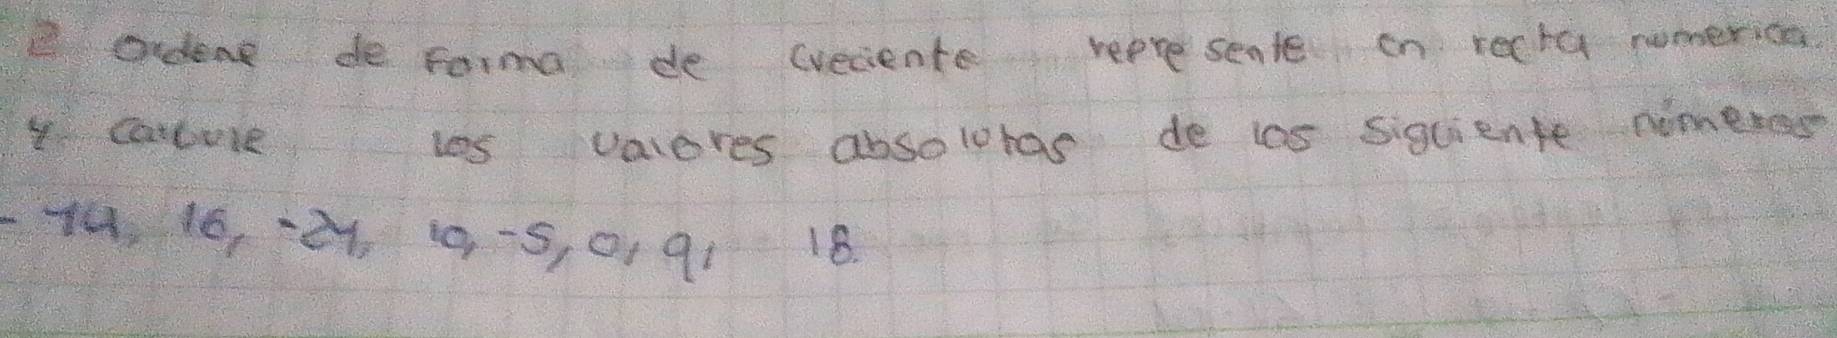 2 ordene de Forma de creciente represente en recta numerica
y calcule los valores absolutas de los siguiente números
- 14, 16, -24, 10, -5, 0, 9, 18.